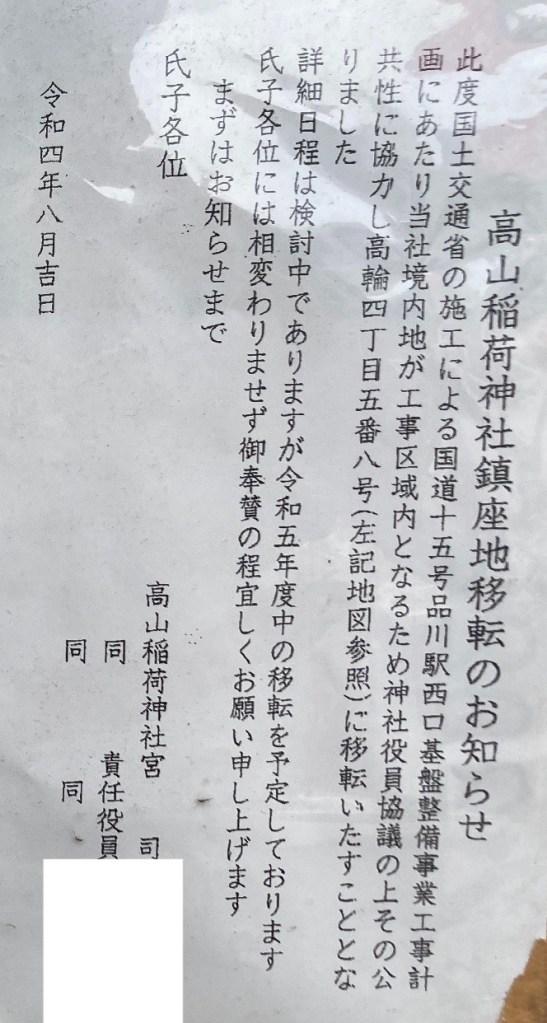 高山稲荷神社鎮座地移転のお知らせ
此度国土交通省の施工による国道十五号品川駅西口基盤整備事業工事計
画にあたり当社境内地が工事区域内となるため神社役員協議の上その公
共性に協力し高輪四丁目五番八号(左記地図参照)に移転いたすこととな
りました
詳細日程は検討中でありますが令和五年度中の移転を予定しております
氏子各位には相変わりませず御奉賛の程宜しくお願い申し上げます
まずはお知らせまで
氏子各位
高山稲荷神社宮 司
同 責任役員
同 同
令和四年八月吉日